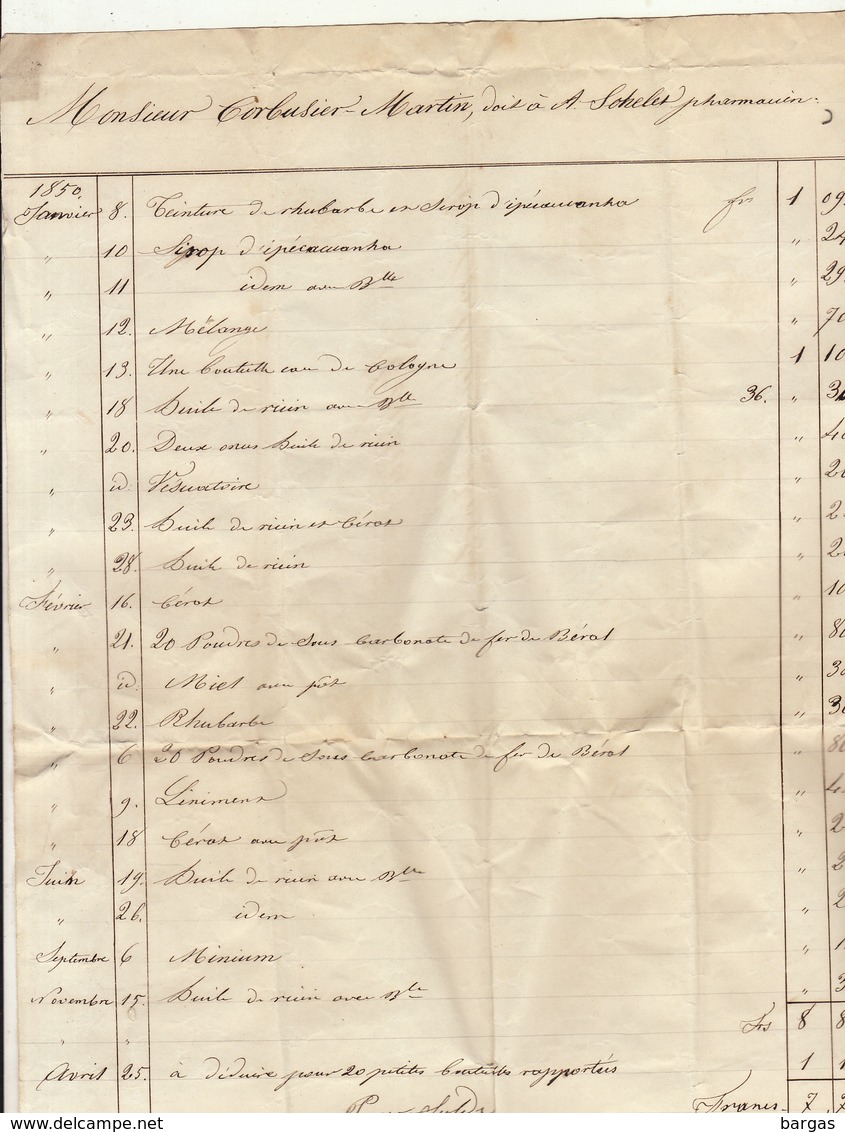 Monsieur Corbusier-Martin, doit à A. Schelet pharmacien.
1850.
Janvier 8. Teinture de rhubarbe et Sirop d'ipécacuanha frs 1 09
" 10 Sirop d'ipécacuanha " 24
" 11 idem avec Blle " 29
" 12. Mélange " 70
" 13. Une bouteille eau de Cologne 1 10
" 18 huile de ricin avec Blle 36. " 3
" 20. Deux onces huile de ricin " 40
" id. Vésicatoire " 20
" 23. huile de ricin et Cérat " 2
" 28. huile de ricin " 2
Février 16. Cérat " 10
" 21. 20 Poudres de Sous Carbonate de fer de Bérat " 80
" id. Miel avec pot " 30
" 22. Rhubarbe " 30
" 6 20 Poudres de Sous Carbonate de fer de Bérat " 80
" 9. Liniment " 40
" 18 Cérat avec pot " 2
Juin 19. huile de ricin avec Blle " 2
" 26. idem " 2
Septembre 6 Minium " 1
Novembre 15. huile de ricin avec Blle " 3
" " Frs 8 8
Avril 25. à déduire pour 20 petites bouteilles rapportés 1 1
Francs 7, 7
bargas